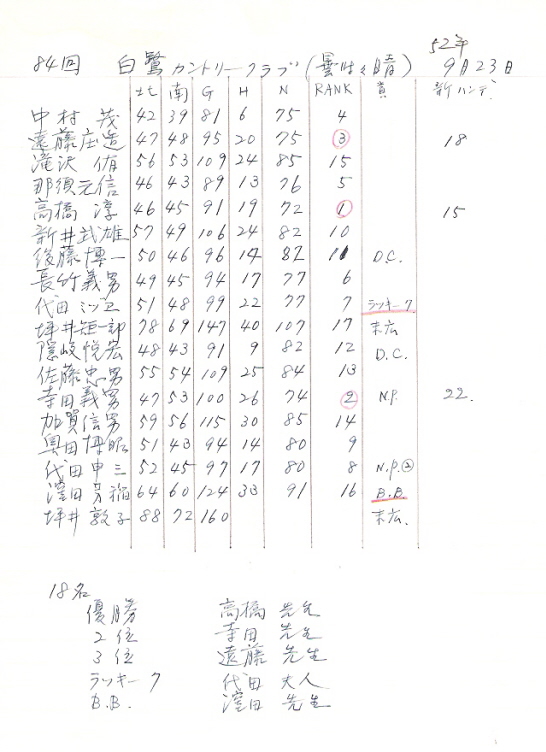 52年
84回 白鷺カントリークラブ(曇時々晴) 9月23日
北 南 G H N RANK 賞 新ハンデ.
中村 茂 42 39 81 6 75 4
遠藤庄造 47 48 95 20 75 ③ 18
滝沢 侑 56 53 109 24 85 15
那須元信 46 43 89 13 76 5
高橋 淳 46 45 91 19 72 ① 15
新井武雄 57 49 106 24 82 10
後藤博一 50 46 96 14 82 11 D.C.
長竹義男 49 45 94 17 77 6
代田ミツ江 51 48 99 22 77 7 ラッキー7
坪井矩一郎 78 69 147 40 107 17 末広
隠岐悦宏 48 43 91 9 82 12 D.C.
佐藤忠男 55 54 109 25 84 13
寺田義男 47 53 100 26 74 ② N.P. 22.
加賀信男 59 56 115 30 85 14
奥田博昭 51 43 94 14 80 9
代田申三 52 45 97 17 80 8 N.P.②
窪田 64 60 124 33 91 16 B.B.
坪井敦子 88 72 160 末広.
18名
優勝 高橋 先生
2位 寺田 先生
3位 遠藤 先生
ラッキー7 代田 夫人
B.B. 窪田 先生